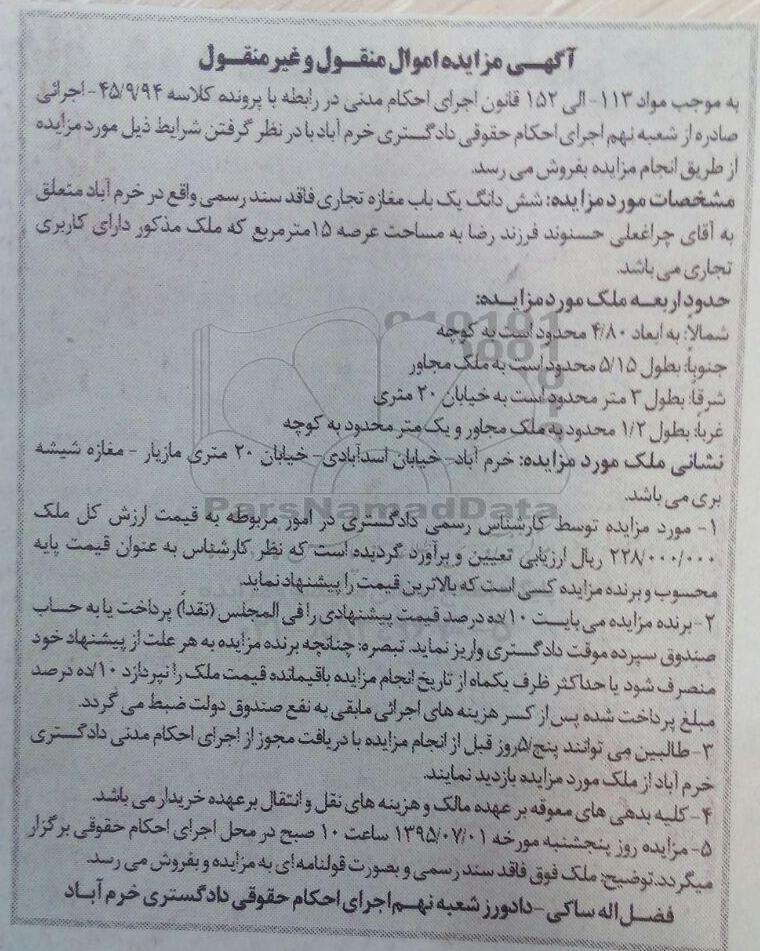 آگهی مزایده اموال منقول و غیر منقول
به موجب مواد ۱۱۳- الی ۱۵۲ قانون اجرای احکام مدنی در رابطه با پرونده کلاسه ۴۵/۹/۹۴- اجرائی
صادره از شعبه نهم اجرای احکام حقوقی دادگستری خرم آباد با در نظر گرفتن شرایط ذیل مورد مزایده
از طریق انجام مزایده بفروش می رسد.
مشخصات مورد مزایده: شش دانگ یک باب مغازه تجاری فاقد سند رسمی واقع در خرم آباد متعلق
به آقای چراغعلی حسنوند فرزند رضا به مساحت عرصه ۱۵مترمربع که ملک مذکور دارای کاربری
تجاری می باشد.
حدود اربعه ملک مورد مزایده:
شمالاً: به ابعاد ۴/۸۰ محدود است به کوچه
جنوباً: بطول ۵/۱۵ محدود است به ملک مجاور
شرقاً: بطول ۳ متر محدود است به خیابان ۲۰ متری
غرباً: بطول ۱/۲ محدود به ملک مجاور و یک متر محدود به کوچه
نشانی ملک مورد مزایده: خرم آباد- خیابان اسدآبادی- خیابان ۲۰ متری مازیار - مغازه شیشه
بری می باشد.
ParsNamadData
۱- مورد مزایده توسط کارشناس رسمی دادگستری در امور مربوطه به قیمت ارزش کل ملک
۲۲۸/۰۰۰/۰۰۰ ریال ارزیابی تعیین و برآورد گردیده است که نظر کارشناس به عنوان قیمت پایه
محسوب و برنده مزایده کسی است که بالاترین قیمت را پیشنهاد نماید.
۲- برنده مزایده می بایست ۱۰/ده درصد قیمت پیشنهادی را فی المجلس (نقداً) پرداخت یا به حساب
صندوق سپرده موقت دادگستری واریز نماید. تبصره: چنانچه برنده مزایده به هر علت از پیشنهاد خود
منصرف شود یا حداکثر ظرف یکماه از تاریخ انجام مزایده باقیمانده قیمت ملک را نپردازد ۱۰/ده درصد
مبلغ پرداخت شده پس از کسر هزینه های اجرائی مابقی به نفع صندوق دولت ضبط می گردد.
۳- طالبین می توانند پنج/۵روز قبل از انجام مزایده با دریافت مجوز از اجرای احکام مدنی دادگستری
خرم آباد از ملک مورد مزایده بازدید نمایند.
۴- کلیه بدهی های معوقه بر عهده مالک و هزینه های نقل و انتقال بر عهده خریدار می باشد.
۵- مزایده روز پنجشنبه مورخه ۱۳۹۵/۰۷/۰۱ ساعت ۱۰ صبح در محل اجرای احکام حقوقی برگزار
میگردد.توضیح: ملک فوق فاقد سند رسمی و بصورت قولنامه ای به مزایده و بفروش می رسد.
فضل اله ساکی - دادورز شعبه نهم اجرای احکام حقوقی دادگستری خرم آباد